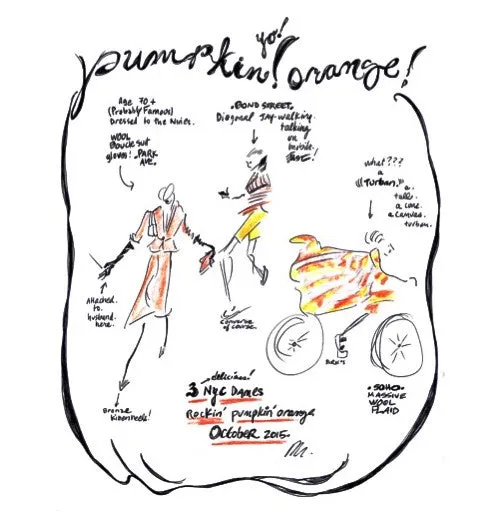 yo!
pumpkin! orange!
Age 70+
(Probably Famous)
Dressed to the Nines.
WOOL
Boucle suit
gloves! PARK
AVE.
BOND STREET.
Diagonal Jay-walking.
talking
on
mobile.
what???
a
"Turban."
a.
talk.
a cone.
a canvas.
turban.
Attached.
to.
husband.
here.
Converse
of course.
Bronze
Kitten heels!
SOHO
MASSIVE
WOOL
PLAID
delicious!
3 NYC DAMES
Rockin' pumpkin' orange
October 2015.